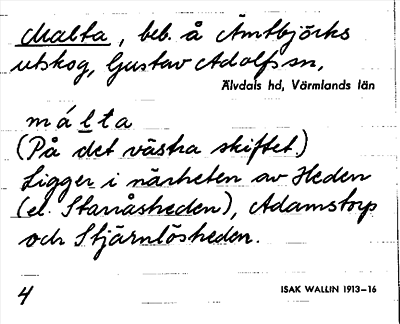 Malta, beb. å Ämtbjörks
utskog, Gustav Adolfs sn,
Älvdals hd, Värmlands län
málta
(På det västra skiftet)
Ligger i närheten av Heden
(el. Stanåsheden), Adamstorp
och Stjärnlösheden.
4
ISAK WALLIN 1913–16